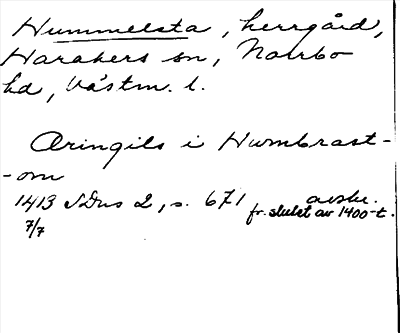 Hummelsta, herrgård,
Harakers sn, Norrbo
hd, Västm. l.
Aringils i Humbrast-
-om
1413 SDns 2, s. 671 avskr.
7/7 fr. slutet av 1400-t.